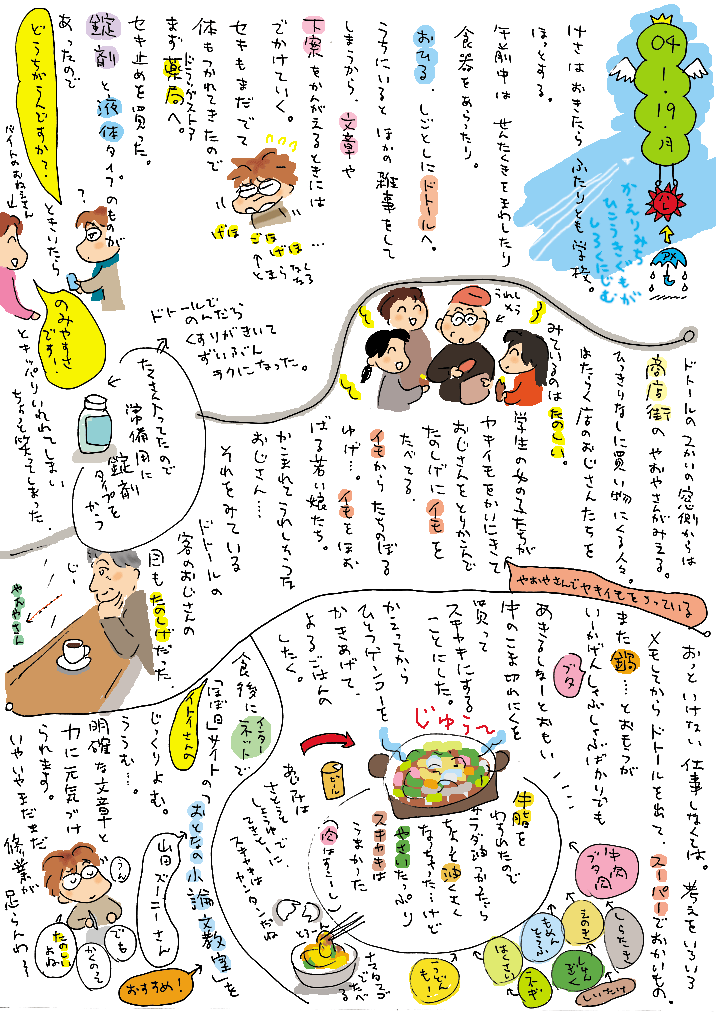 04
1・19・月
かえりみち
ひこうきぐもが
しろくにじむ
けさはおきたら ふたりとも学校。
ほっとする。
午前中は せんたくきをまわしたり
食器をあらったり。
おひる、しごとしにドトールへ。
うちにいると ほかの雑事をして
しまうから、文章や
下案をかんがえるときには
でかけていく。
セキもまだでて
体もつかれてきたので
まず薬局へ。
ドラッグストア
セキ止めを買った。
錠剤と液体タイプのものが
あったので
どうちがうんですか?
ときいたら
バイトのおねえさん
のみやすさ
です!
とキッパリいわれてしまい
ちょっと笑ってしまった。
げほ ごほ げほ …
?
たくさん入ってたので
常備用に
錠剤
タイプを
かう
ドトールで
のんだら
くすりがきいて
ずいぶん
ラクになった。
ドトールの2かいの窓側からは
商店街の やおやさんがみえる。
ひっきりなしに買い物にくる人々。
はたらく店のおじさんたちを
みているのは たのしい。
うれしそう
やおやさんでヤキイモをうっている
学生の女の子たちが
ヤキイモをかいにきて
おじさんをとりかこんで
たのしげにイモを
たべてる。
イモからたちのぼる
ゆげ…。イモをほお
ばる若い娘たち。
かこまれてうれしそうな
おじさん…
それをみている
ドトールの
客のおじさんの
目もたのしげだった。
じー
やおやさん
おっといけない 仕事しなくては。考えをいろいろ
メモしてから ドトールを出て、スーパーでおかいもの。
また鍋…とおもったが
いーかげんしゃぶしゃぶばかりでも
ブタ
あきるしなーとおもい
牛のこま切れにくを
買って
スキヤキにする
ことにした。
かえってから
ひとつゲンコーを
かきあげて、
よるごはんの
したく。
じゅう〜
ビール
牛脂を
わすれたので
サラダ油つかったら
ちょっと油くさく
なっちゃった…けど
やさいたっぷり
スキヤキは
うまかった
(肉はすこーし)
あじは
さとうそで
しょうゆで
てきとーに。
スキヤキは
カンタンだね
とろーん
ナマタマゴ
でたべ
る
牛肉
ブタ肉
しらたき
えのき
もめん
とうふ
しゅん
ぎく
はくさい
ネギ
しいたけ
うどん
も!
食後に
インター
ネットで
イトイさんの
「ほぼ日」サイトの
「おとなの小論文教室」を
じっくりよむ。
山田ズーニーさん
おすすめ!
ううむ…。
明確な文章と
力に元気づけ
られます。
いやいやまだまだ
修業が
足らんわ〜
うん
でも
かくのって
たのしい
よね